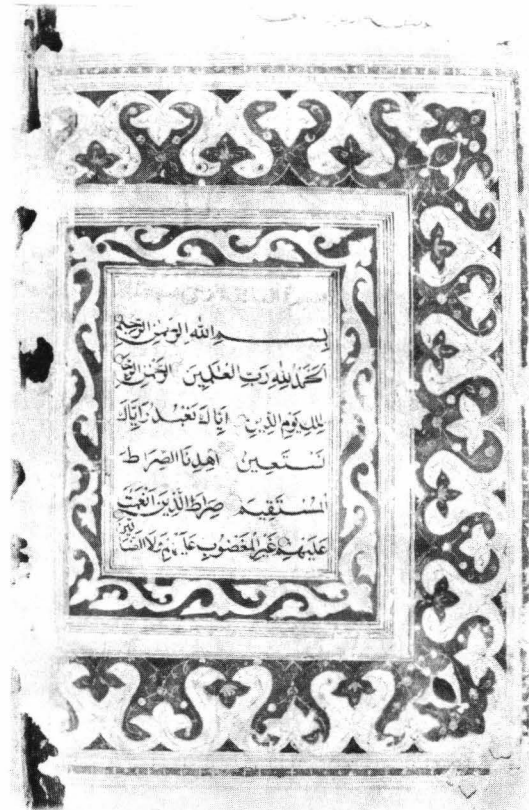 بسم الله الرحمن الرحيم
الحمد لله رب العلمين الرحمن الرحيم
ملك يوم الدين اياك نعبد واياك
نستعين اهدنا الصراط
المستقيم صراط الذين انعمت
عليهم غير المغضوب عليهم ولا الضالين